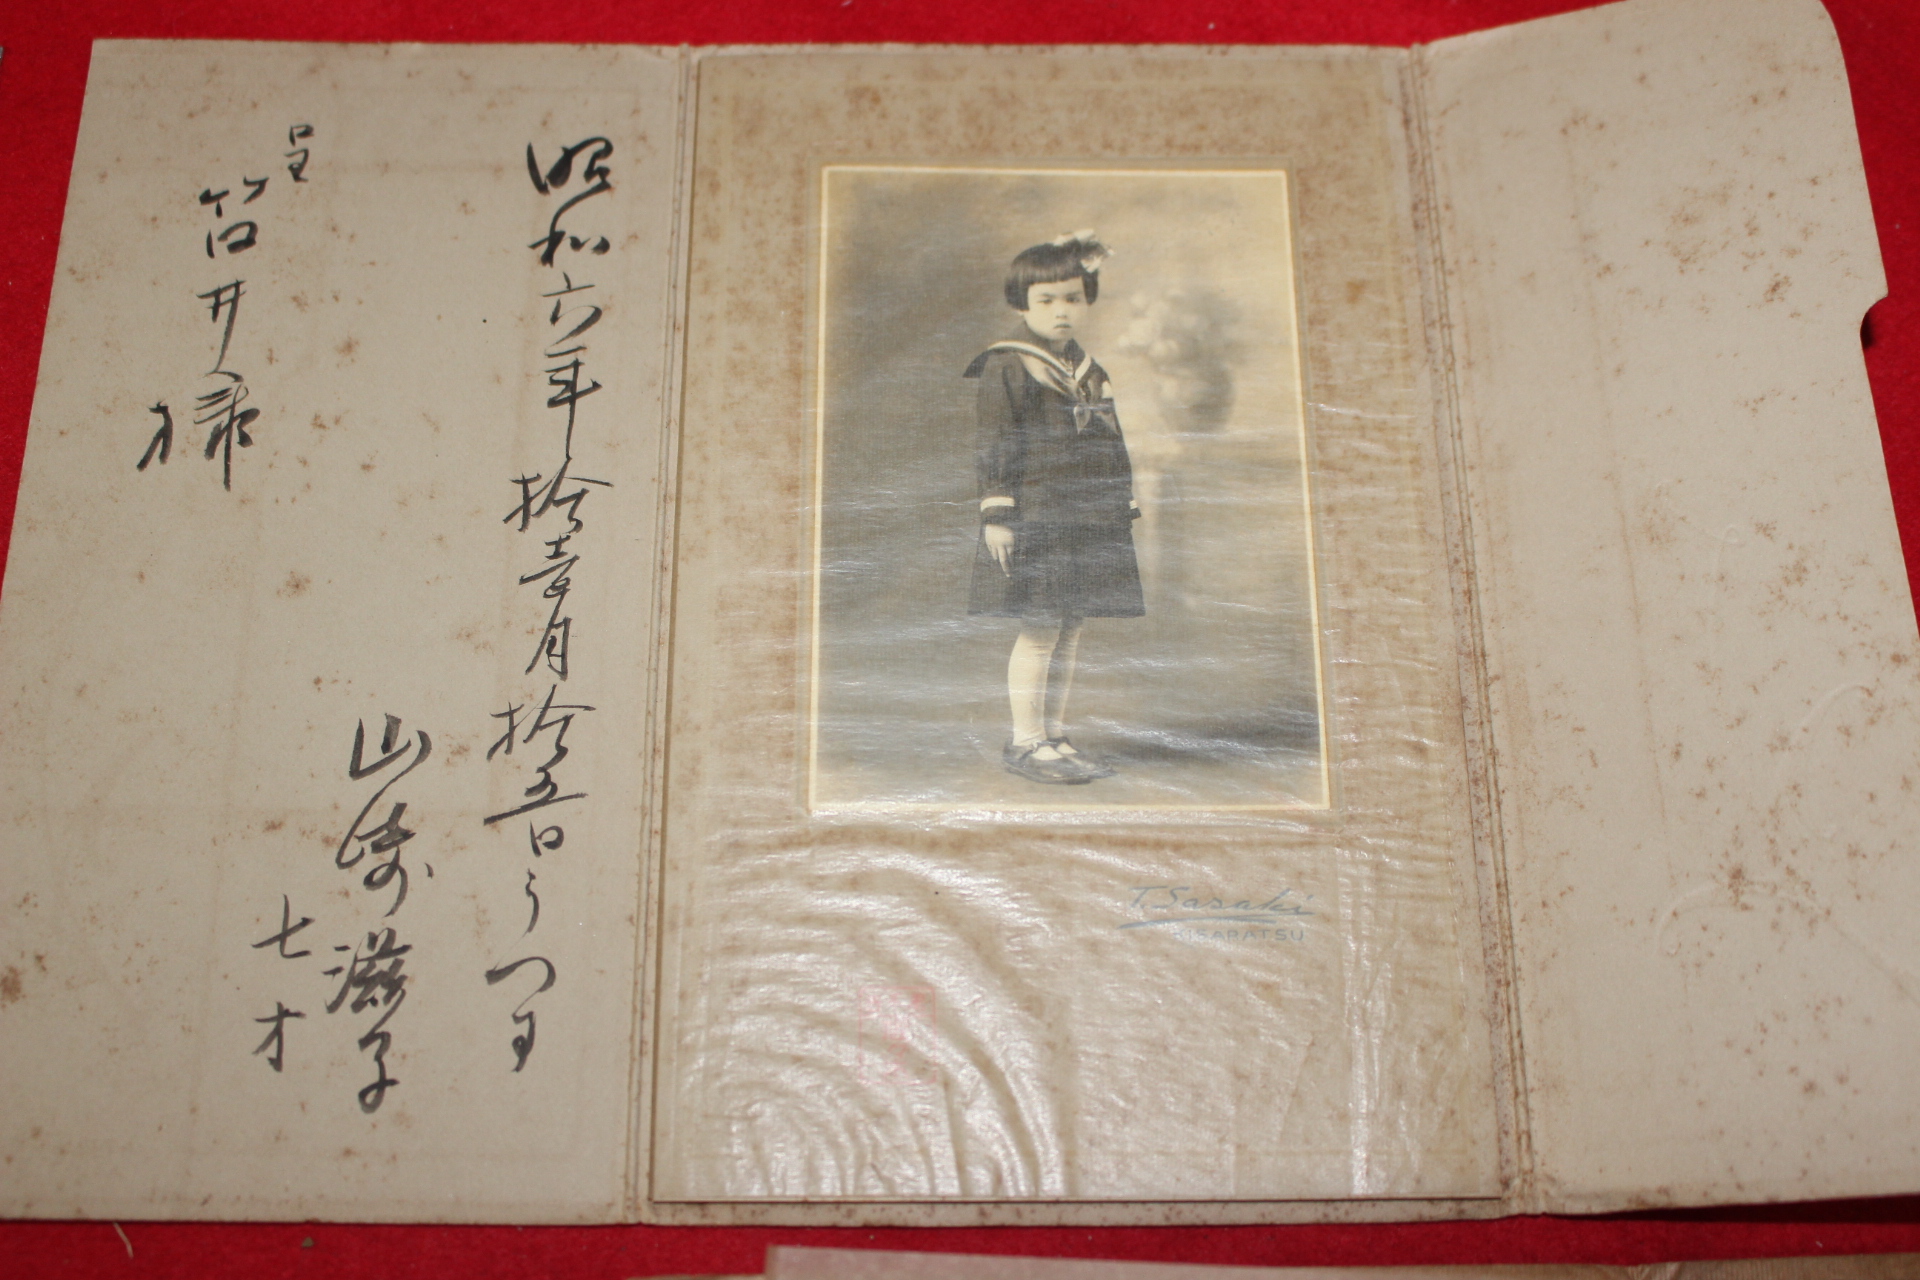 昭和六年拾壹月拾五日うつす
山崎滋子
七才
呈
筒井様
T. Sasaki
KISARATSU